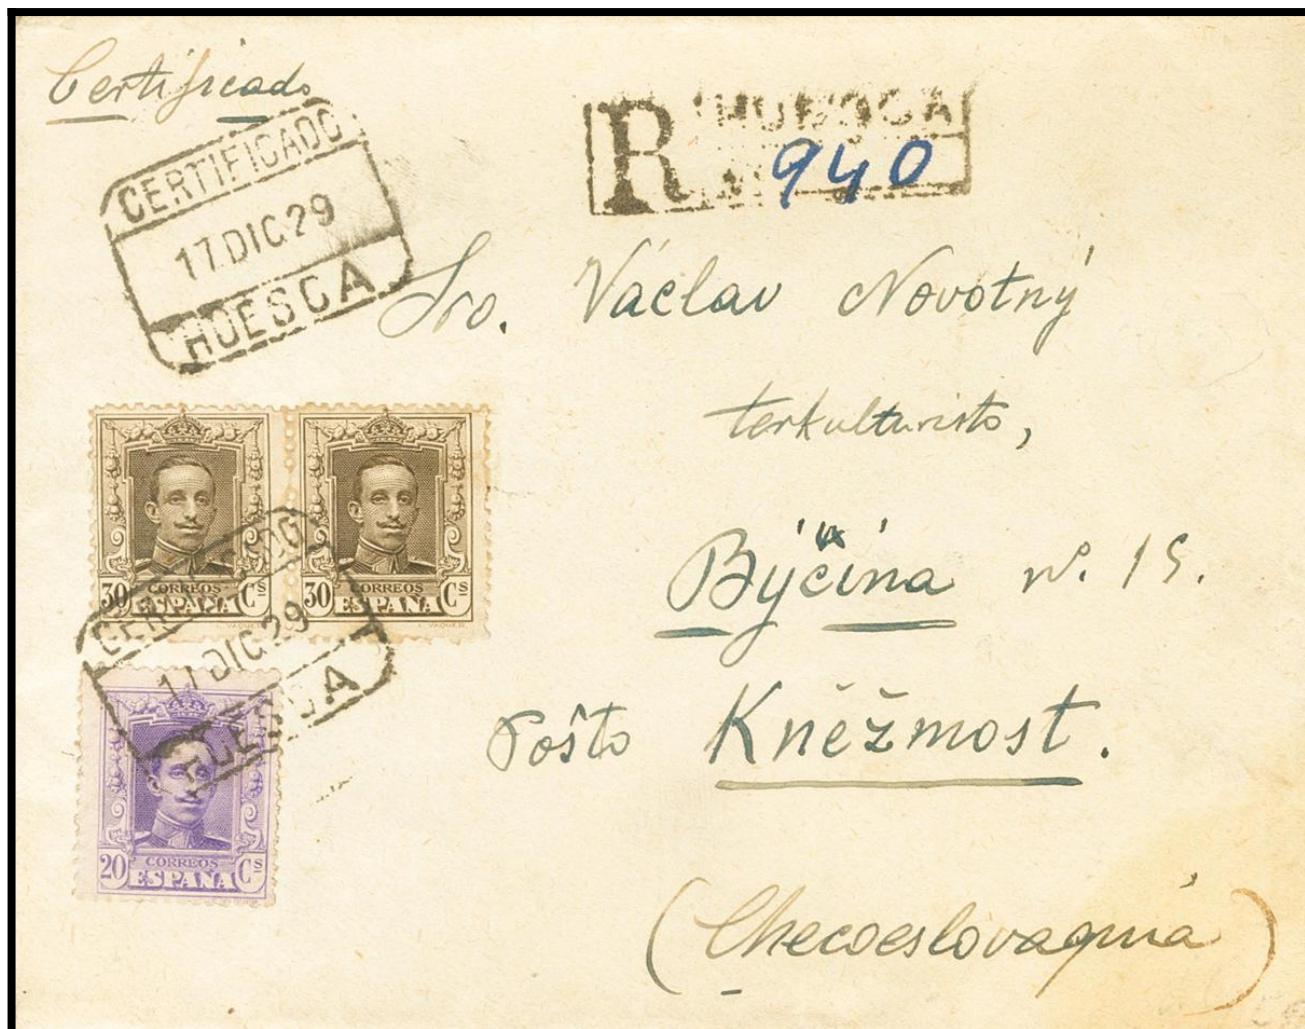 Certificado
CERTIFICADO
17.DIC.29
HUESCA
R HUESCA
940
Sro. Václav Novotný
terkulturisto,
Býčina nº. 15.
Poŝto Kněžmost.
(Checoeslovaquia)
30 CORREOS ESPAÑA Cs
30 CORREOS ESPAÑA Cs
CERTIFICADO
17 DIC.29
HUESCA
20 CORREOS ESPAÑA Cs